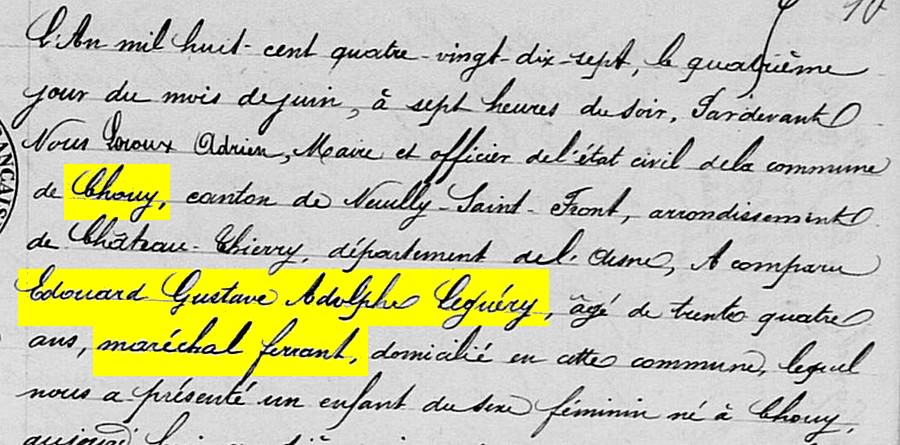 10
L'An mil huit-cent quatre-vingt-dix-sept, le quatrième
jour du mois de juin, à sept heures du soir, Pardevant
Nous Leroux Adrien, Maire et officier de l'état civil de la commune
de Chouy, canton de Neuilly-Saint-Front, arrondissement
de Château-Thierry, département de l'Aisne, A comparu
Edouard Gustave Adolphe Leguéry, âgé de trente quatre
ans, maréchal ferrant, domicilié en cette commune, lequel
nous a présenté un enfant du sexe féminin né à Chouy,